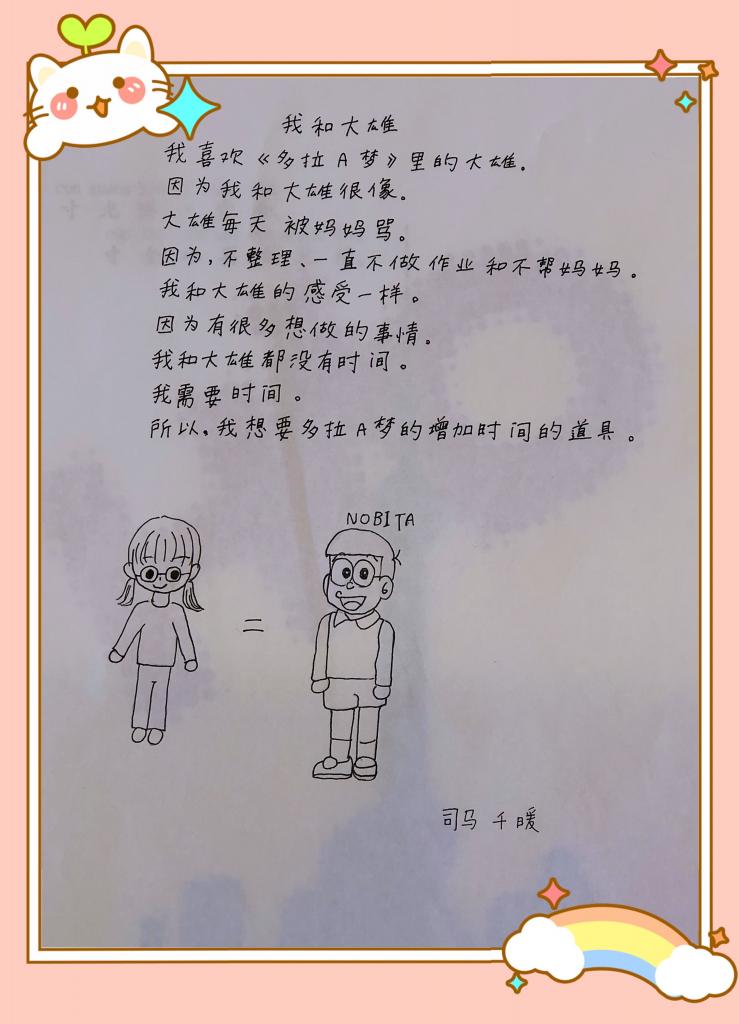 我和大雄
我喜欢《多拉A梦》里的大雄。
因为我和大雄很像。
大雄每天 被妈妈骂。
因为,不整理、一直不做作业和不帮妈妈。
我和大雄的感受一样。
因为有很多想做的事情。
我和大雄都没有时间。
我需要时间。
所以,我想要多拉A梦的增加时间的道具。
NOBITA
=
司马 千暖